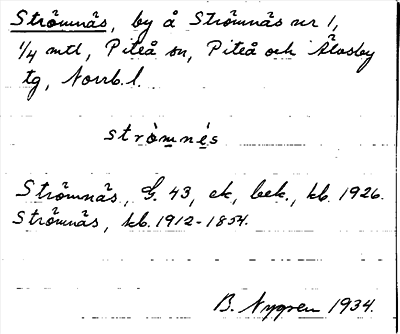 Strömnäs, by å Strömnäs nr 1,
1/4 mtl, Piteå sn, Piteå och Älvsby
tg, Norrb. l.
strò̱mné̱s
Strömnäs, G. 43, ek, bek., kb. 1926.
Strömnäs, kb. 1912-1854.
B. Nygren 1934.